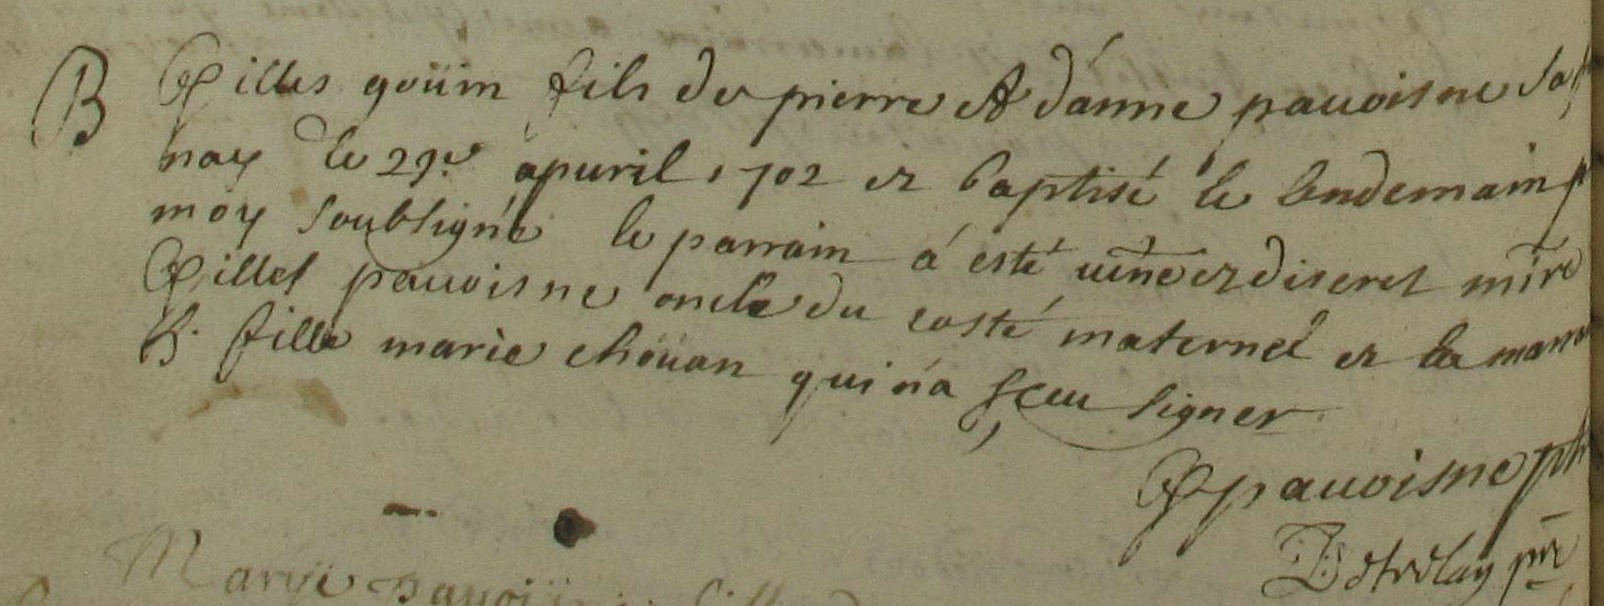 B Gilles goüin fils de pierre et d'anne pauoisne
nay le 29e apuril 1702 et baptisé le lendemain p
moy soubsigné le parrain a esté uene et discret mire
Gilles pauoisne oncle du costé maternel et la mara
h. fille marie choüan qui n'a sceu signer
G pauoisne
Marye